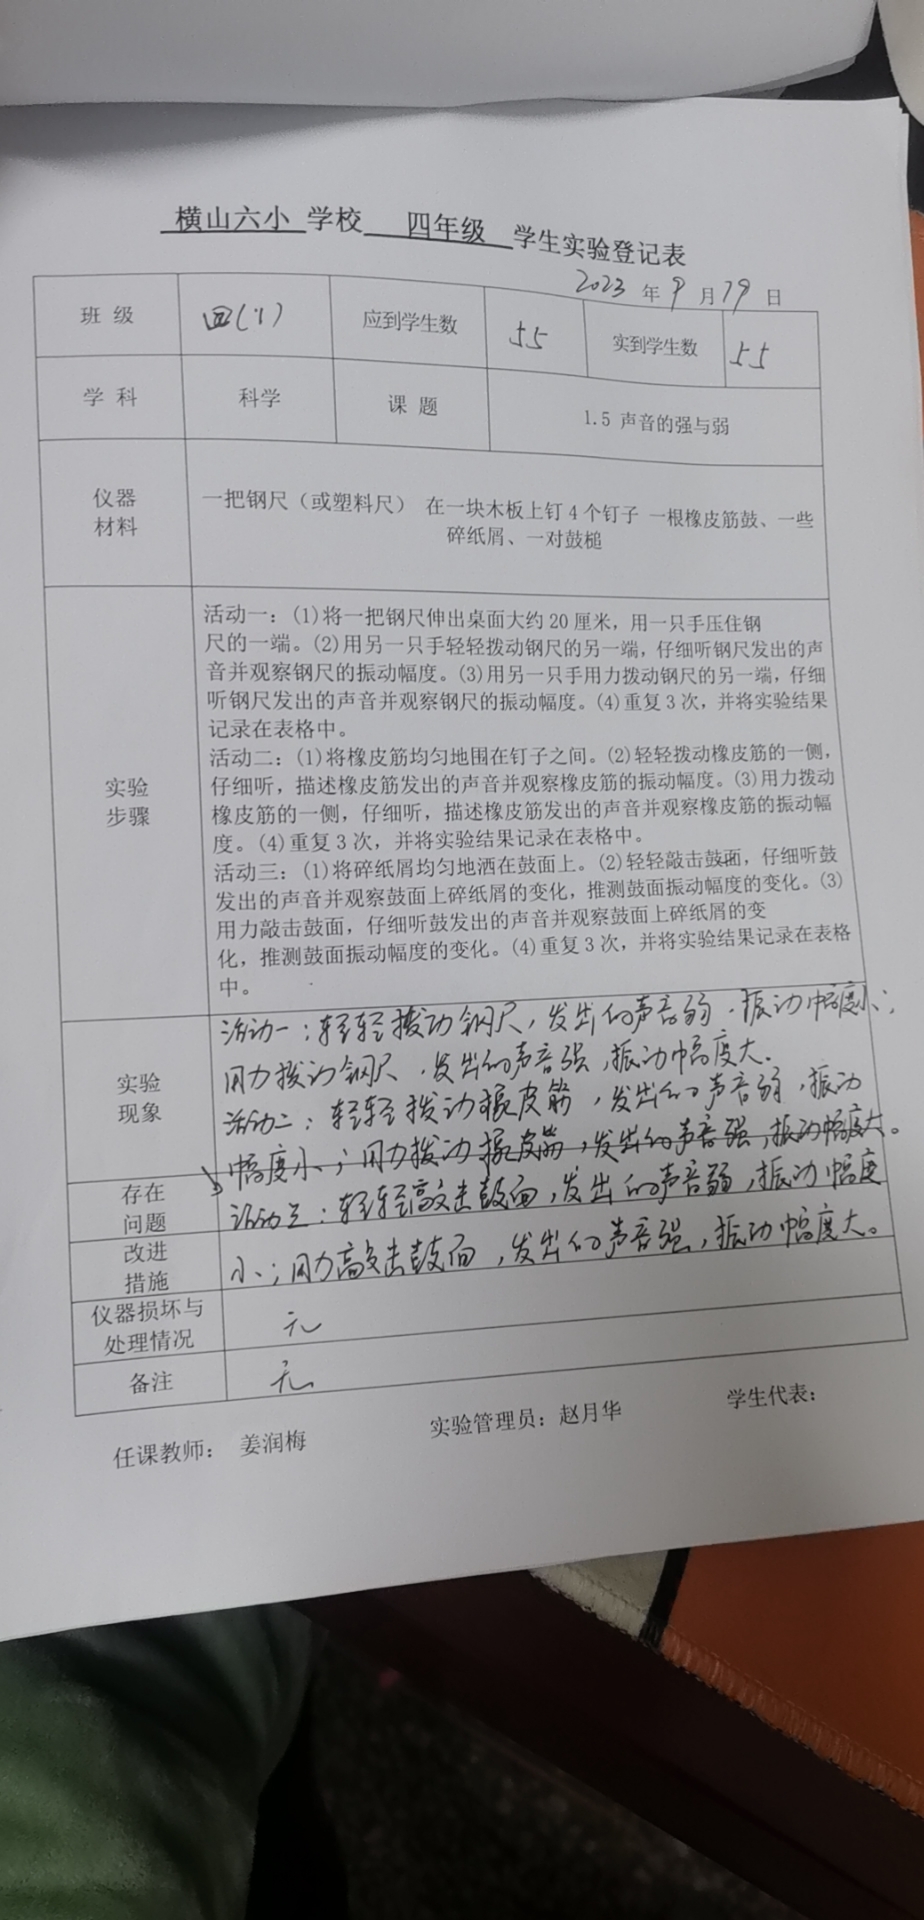 横山六小 学校 四年级 学生实验登记表
2023 年 9 月 19 日
班 级 四(1) 应到学生数 55 实到学生数 55
学 科 科学 课 题 1.5 声音的强与弱
仪器
材料
一把钢尺（或塑料尺） 在一块木板上钉4个钉子 一根橡皮筋鼓、一些
碎纸屑、一对鼓槌
实验
步骤
活动一：(1)将一把钢尺伸出桌面大约20厘米，用一只手压住钢
尺的一端。(2)用另一只手轻轻拨动钢尺的另一端，仔细听钢尺发出的声
音并观察钢尺的振动幅度。(3)用另一只手用力拨动钢尺的另一端，仔细
听钢尺发出的声音并观察钢尺的振动幅度。(4)重复3次，并将实验结果
记录在表格中。
活动二：(1)将橡皮筋均匀地围在钉子之间。(2)轻轻拨动橡皮筋的一侧，
仔细听，描述橡皮筋发出的声音并观察橡皮筋的振动幅度。(3)用力拨动
橡皮筋的一侧，仔细听，描述橡皮筋发出的声音并观察橡皮筋的振动幅
度。(4)重复3次，并将实验结果记录在表格中。
活动三：(1)将碎纸屑均匀地洒在鼓面上。(2)轻轻敲击鼓面，仔细听鼓
发出的声音并观察鼓面上碎纸屑的变化，推测鼓面振动幅度的变化。(3)
用力敲击鼓面，仔细听鼓发出的声音并观察鼓面上碎纸屑的变
化，推测鼓面振动幅度的变化。(4)重复3次，并将实验结果记录在表格
中。
实验
现象
活动一：轻轻拨动钢尺，发出的声音弱，振动幅度小；
用力拨动钢尺，发出的声音强，振动幅度大.
活动二：轻轻拨动橡皮筋，发出的声音弱，振动
幅度小；用力拨动橡皮筋，发出的声音强，振动幅度大。
存在
问题
活动三：轻轻敲击鼓面，发出的声音弱，振动幅度
改进
措施
小；用力敲击鼓面，发出的声音强，振动幅度大。
仪器损坏与
处理情况
无
备注 无
任课教师： 姜润梅 实验管理员：赵月华 学生代表：